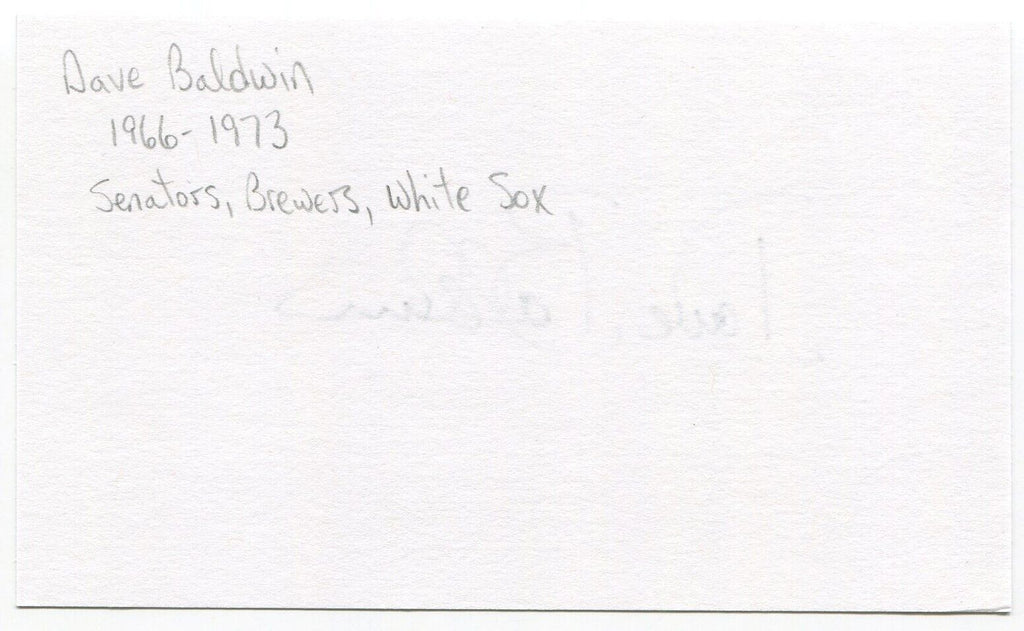 Dave Baldwin
1966-1973
Senators, Brewers, White Sox